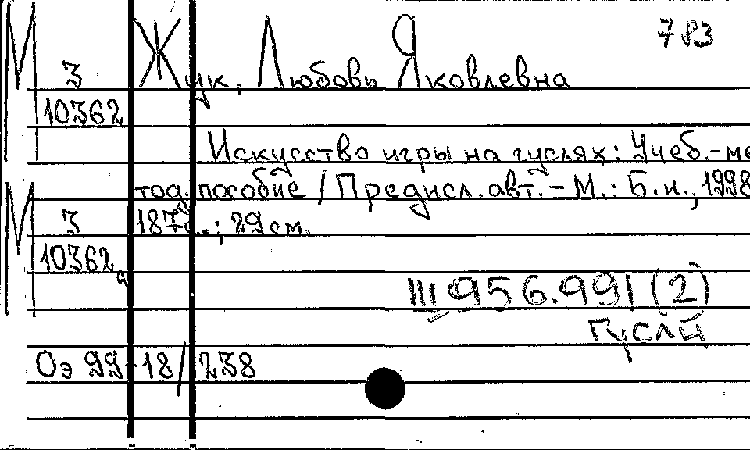 783
М З Жук, Любовь Яковлевна
10362
Искусство игры на гуслях: Учеб.-ме
тод. пособие / Предисл. авт. - М.: Б.и., 1998
М З 187 с.; 29 см.
10362а
Ш 956.991 (2)
гусли
Оэ 99-18/238